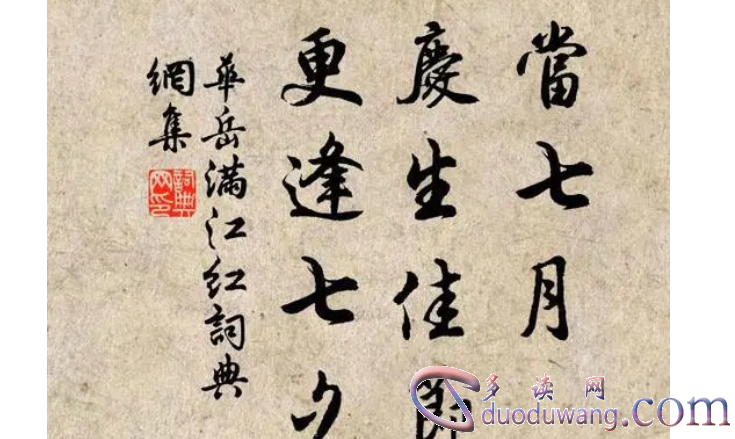 當七月
慶生佳節
更逢七夕
華岳滿江红詞典
網集
詞典网印
多读网
duoduwang.com